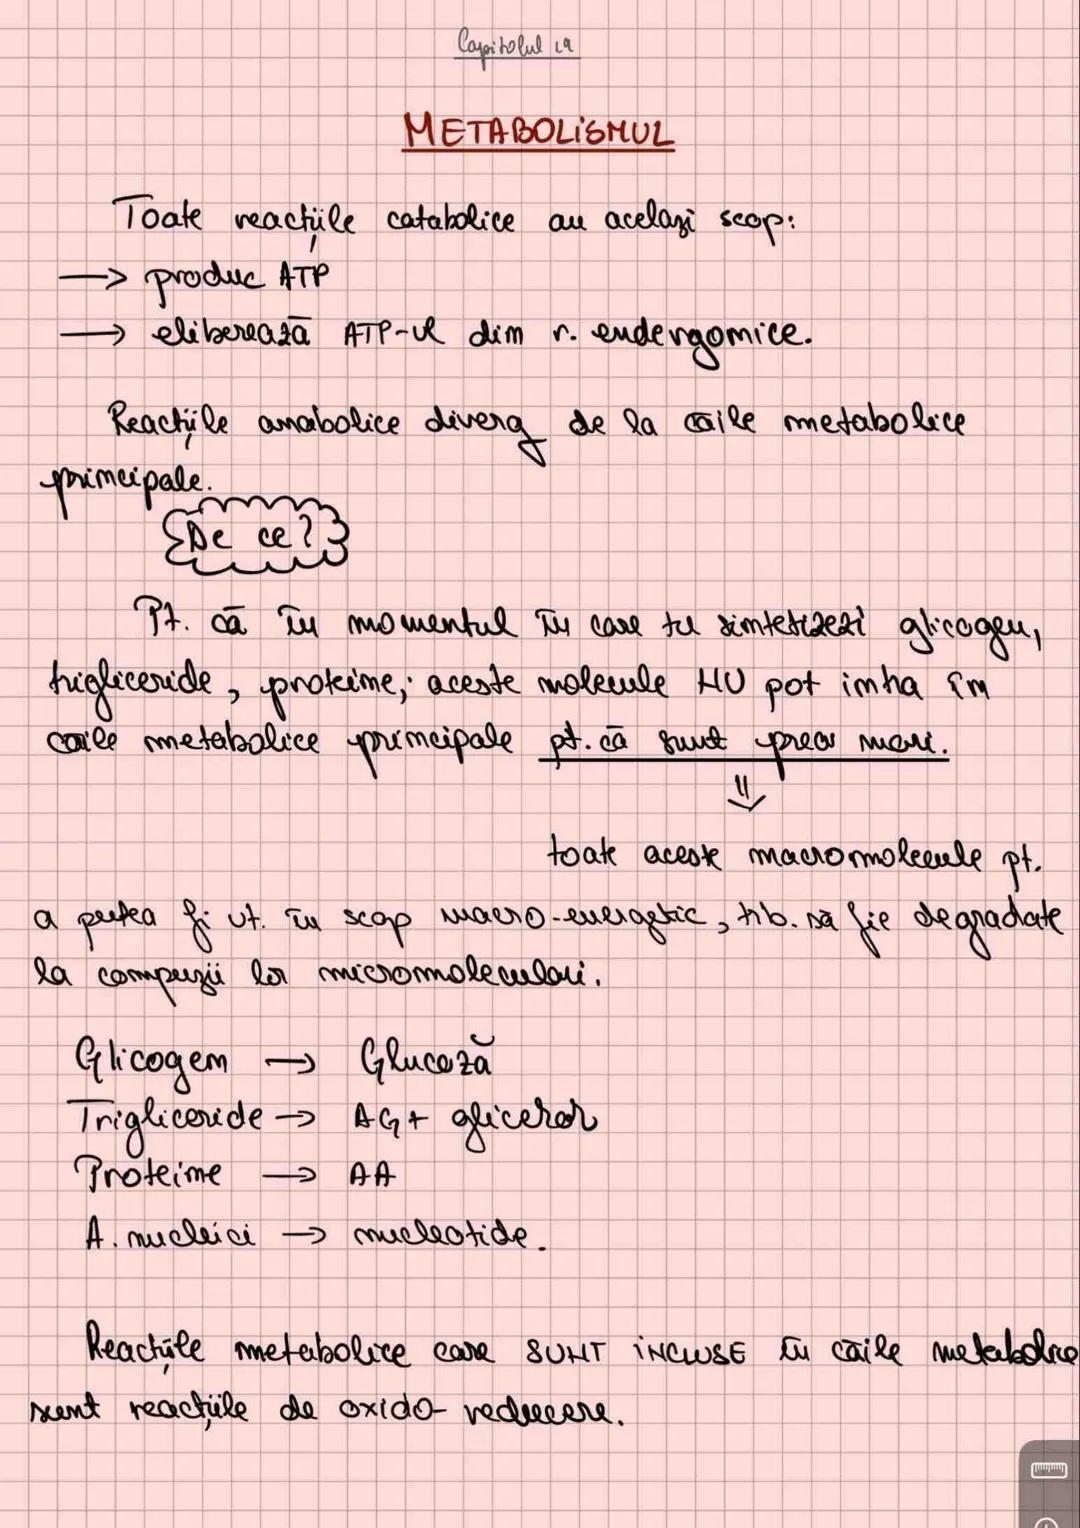 Capitolul 19
METABOLISMUL
Toate reacțiile catabolice au același scop:
→ produc ATP
→ eliberează ATP-ul din r. endergonice.
Reacțiile anabolice diverg de la căile metabolice
principale.
De ce?
Pt. că în momentul în care tu sintetizezi glicogen,
trigliceride, proteine, aceste molecule NU pot intra în
căile metabolice principale pt. că sunt prea mari.
⇓
toate aceste macromolecule pt.
a putea fi ut. în scop macro-energetic, trb. să fie degradate
la compușii lor micromoleculari.
Glicogen → Glucoză
Trigliceride → AG + glicerol
Proteine → AA
A. nucleici → nucleotide.
Reacțiile metabolice care SUNT INCLUSE în căile metabolice
sunt reacțiile de oxido-reducere.